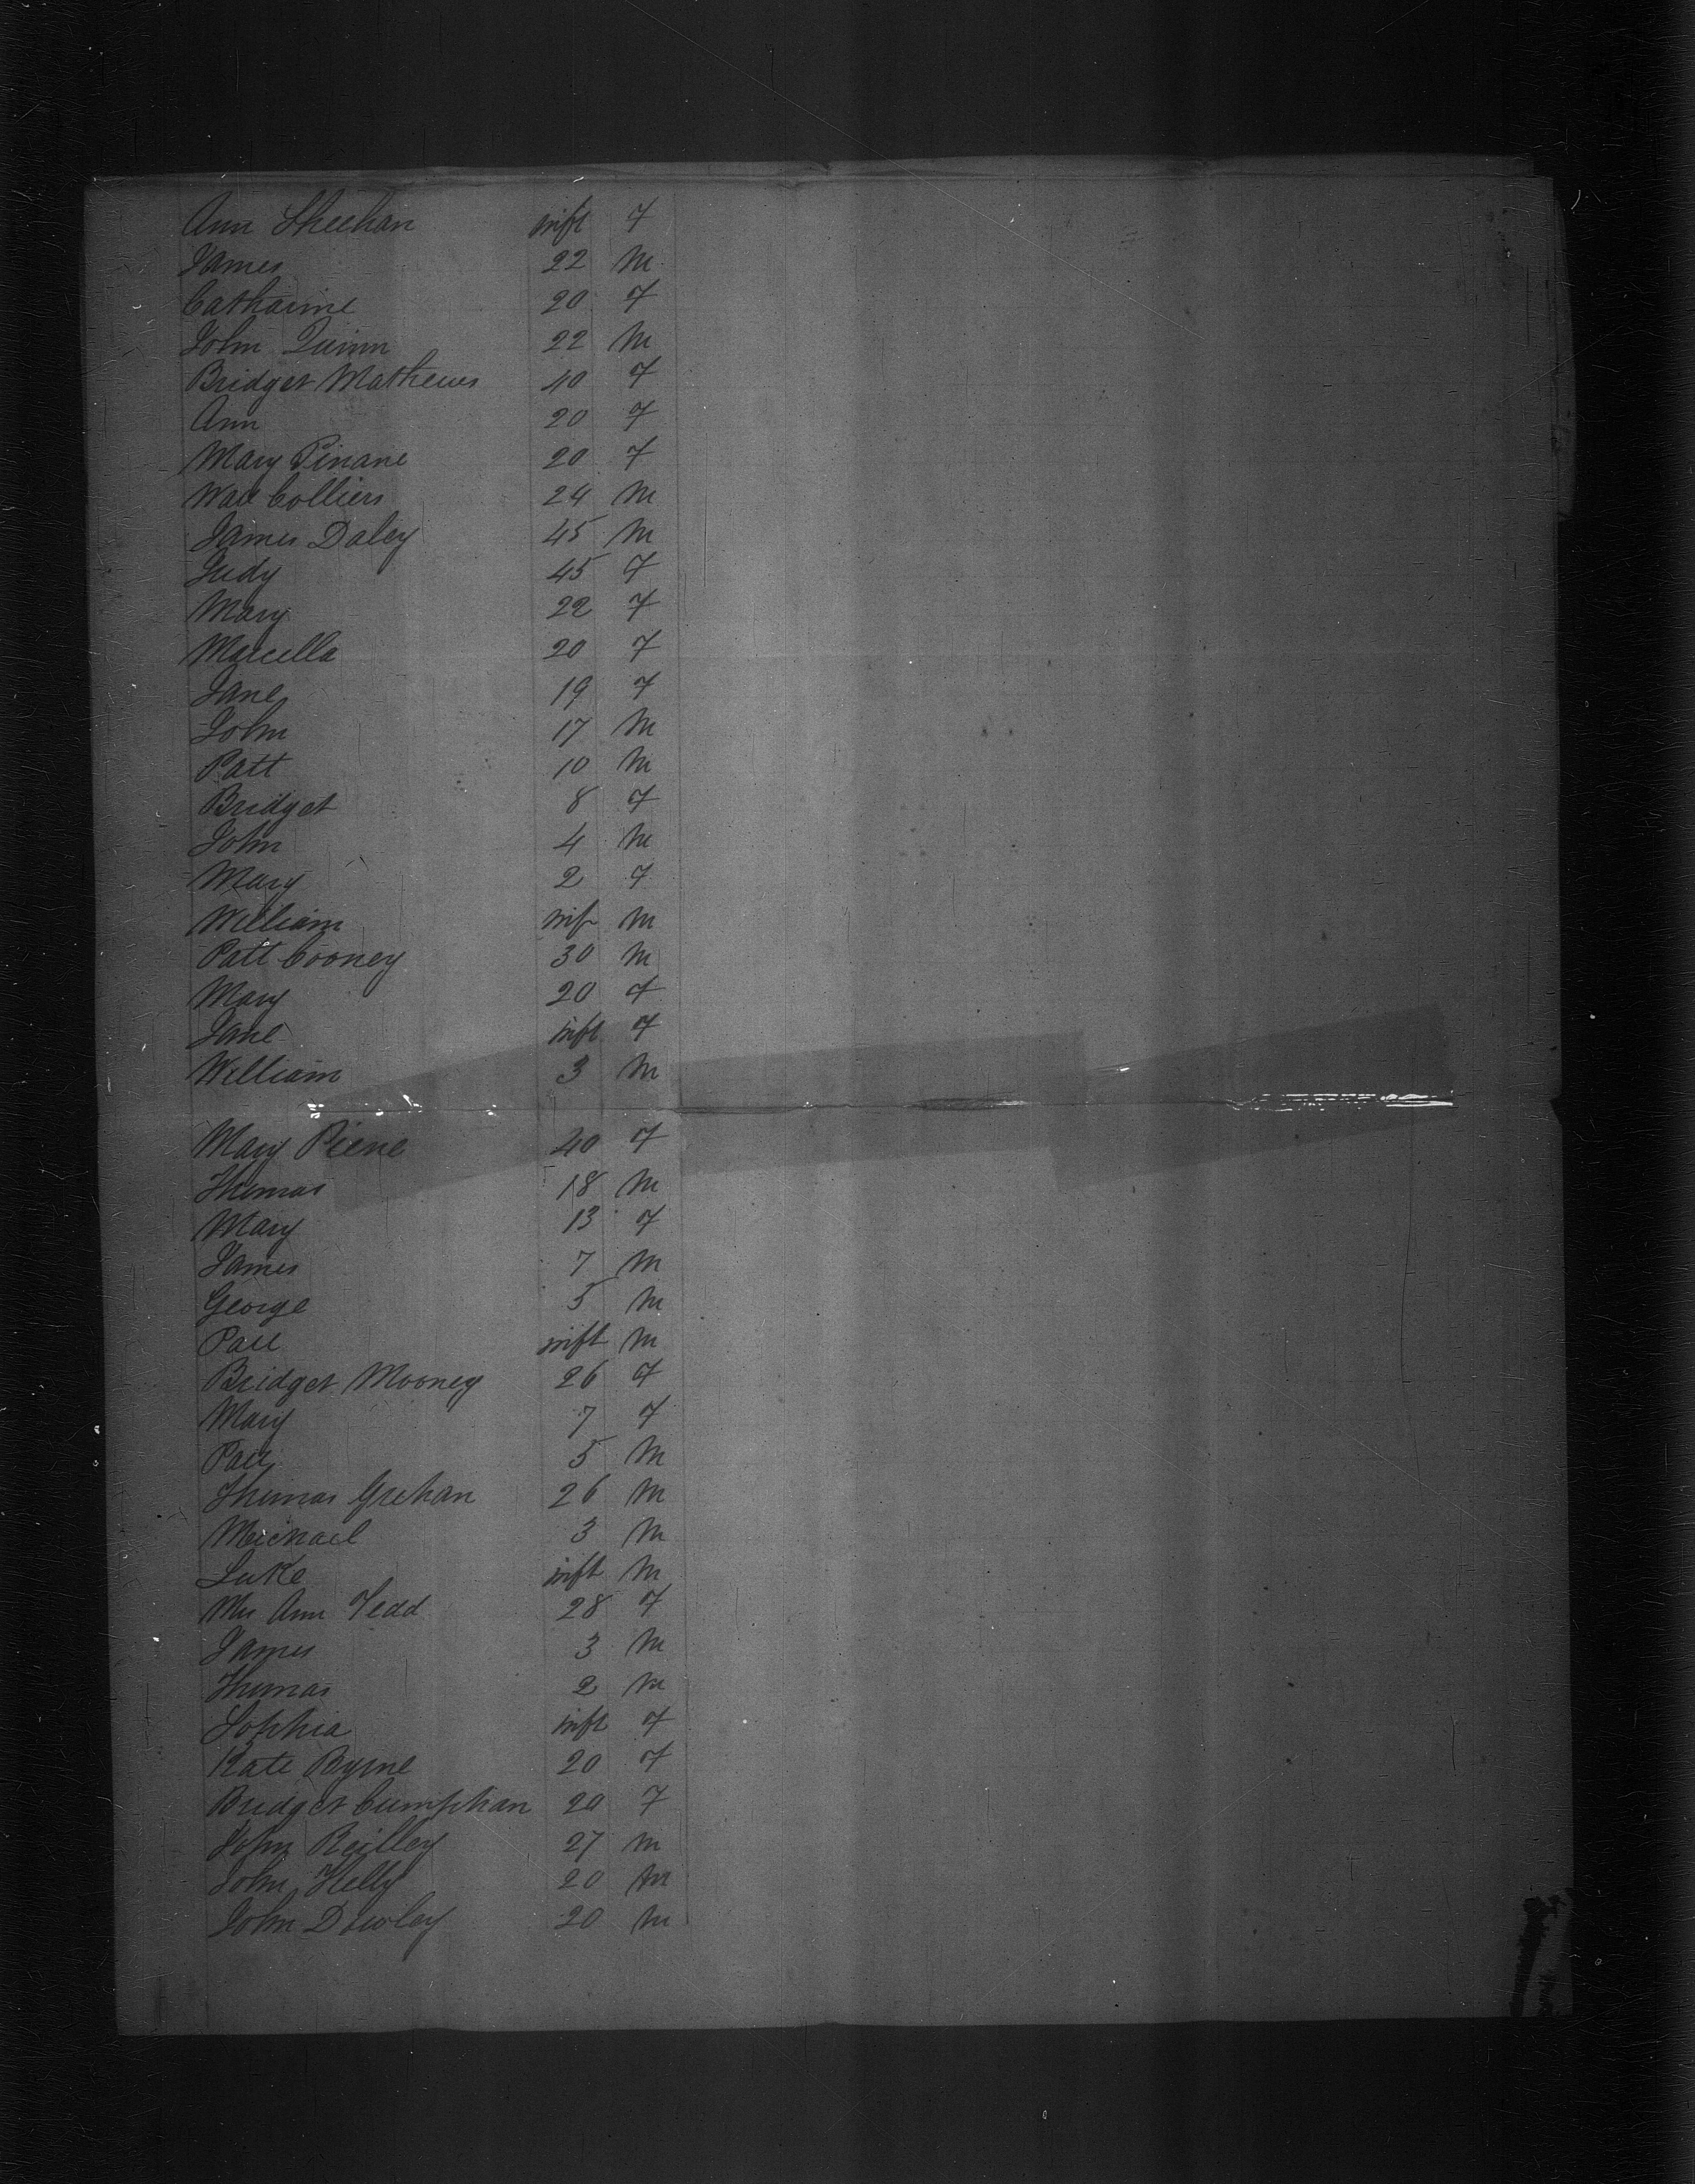 Ann Sheehan inft F
James 22 M
Catharine 20 F
John Quinn 22 M
Bridget Mathews 40 F
Ann 20 F
Mary Pinane 20 F
Colliers 24 M
James Daley 45 M
Judy 45 F
Mary 22 F
Marcella 20 F
Jane 19 F
John 17 M
Patt 10 M
Bridget 8 F
John 4 M
Mary 2 F
William inf M
Patt Cooney 30 M
Mary 20 F
Jane inft F
William 3 M
Mary 40 F
Thomas 18 M
Mary 13 F
James 7 M
George 5 M
Patt inft M
Bridget Mooney 26 F
Mary 7 F
Patt 5 M
Thomas Grehan 26 M
Michael 3 M
Luke inft M
Mrs Ann Tedd 28 F
James 3 M
Thomas 2 M
Sophia inft F
Kate Byrne 20 F
Bridget 20 F
John Reilley 27 M
John Kelly 20 M
John Dowley 20 M